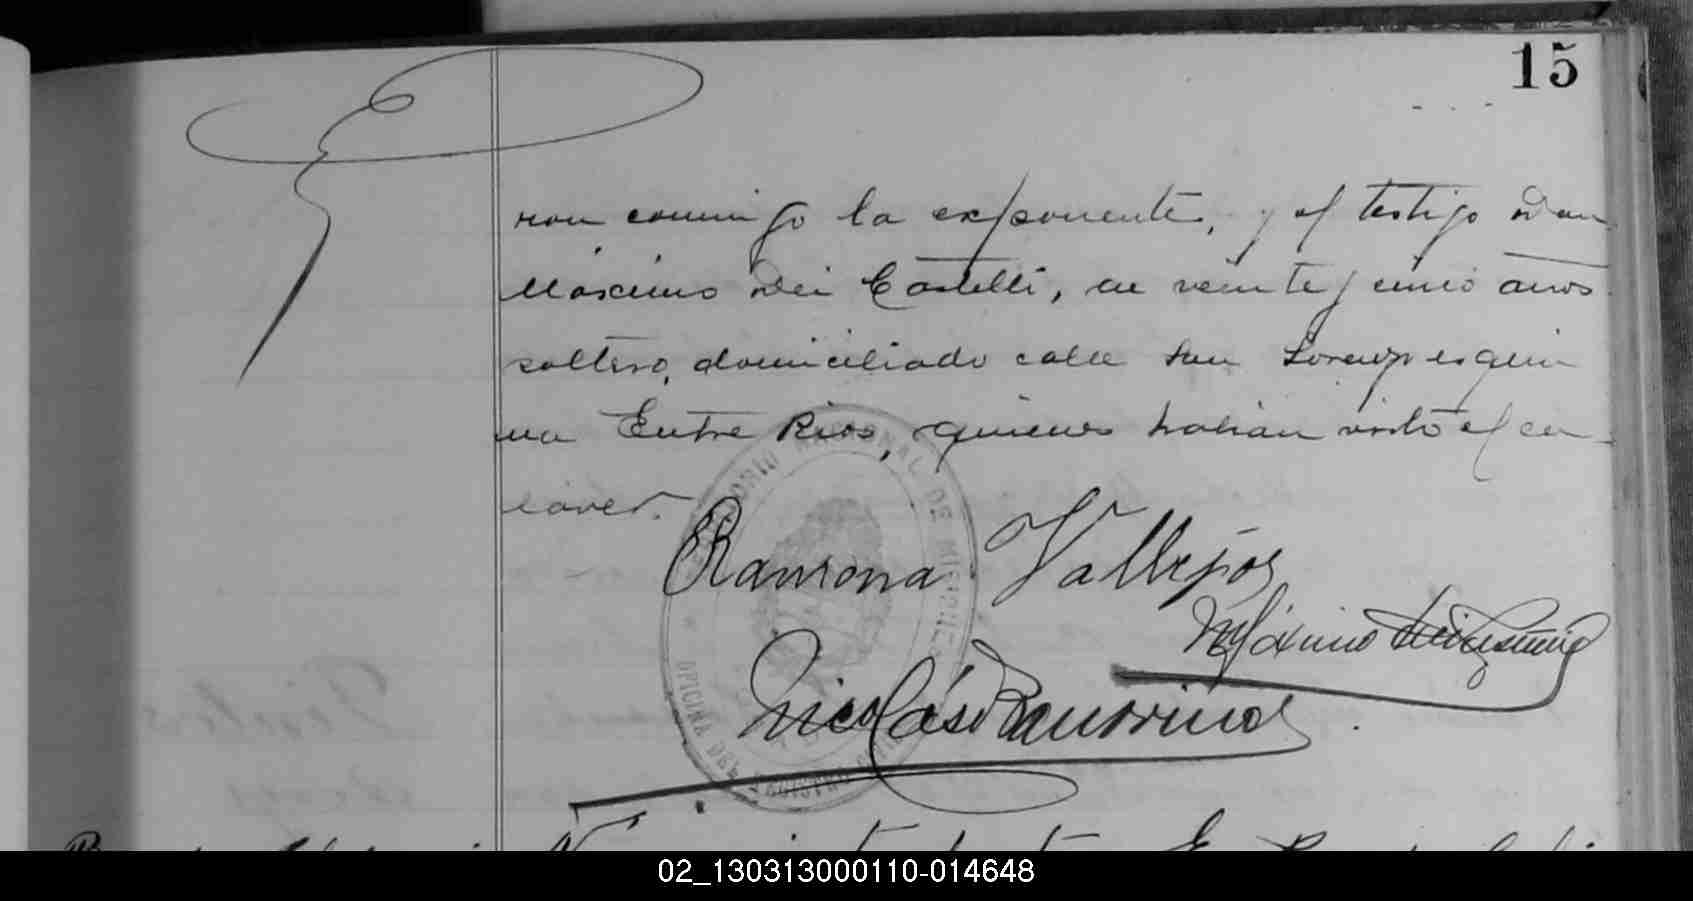 15
ron conmigo la exponente, y el testigo Don
Máximo Dei Castelli, de veinte y cinco años
soltero, domiciliado calle San Lorenzo esqui
na Entre Rios, quienes habian visto el ca
daver.
Ramona Vallejos
Máximo
Nicolás Ramorino
OFICINA DEL REGISTRO
02_130313000110-014648